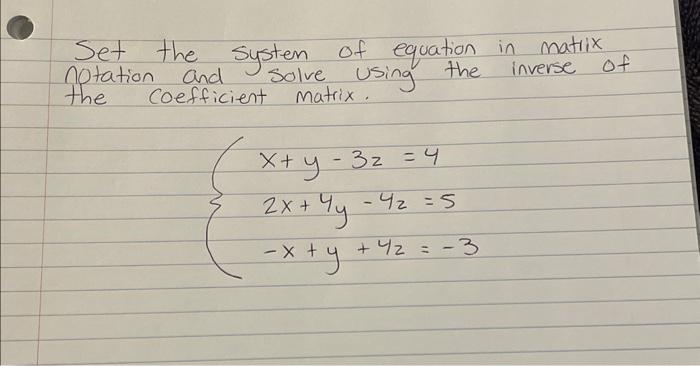 Set the system of equation in matrix
notation and solve using the inverse of
the coefficient matrix.
x + y - 3z = 4
2x + 4y - 4z = 5
-x + y + 4z = -3